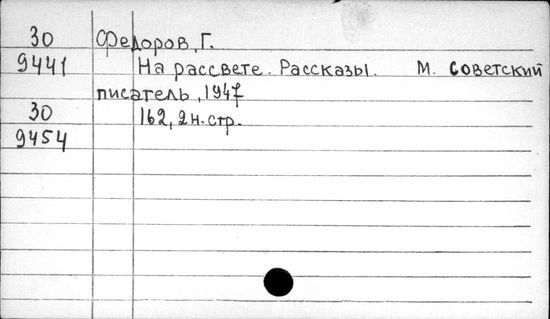 30 Федоров, Г.
9441 На рассвете. Рассказы. М. Советский
писатель, 1947
30 162, 2 н. стр.
9454